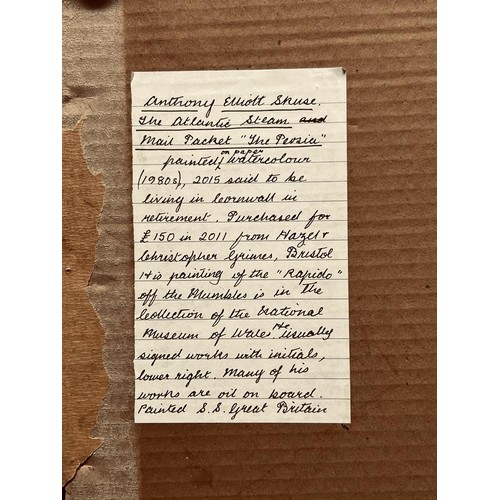 Anthony Elliott Skuse.
The Atlantic Steam and
Mail Packet "The Persia"
painted on paper watercolour
(1980s), 2015 said to be
living in Cornwall in
retirement. Purchased for
£150 in 2011 from Hazel &
Christopher Grimes, Bristol
His painting of the "Rapido"
off the Mumbles is in the
Collection of the National
Museum of Wales. He usually
signed works with initials,
lower right. Many of his
works are oil on board.
Painted S.S. Great Britain